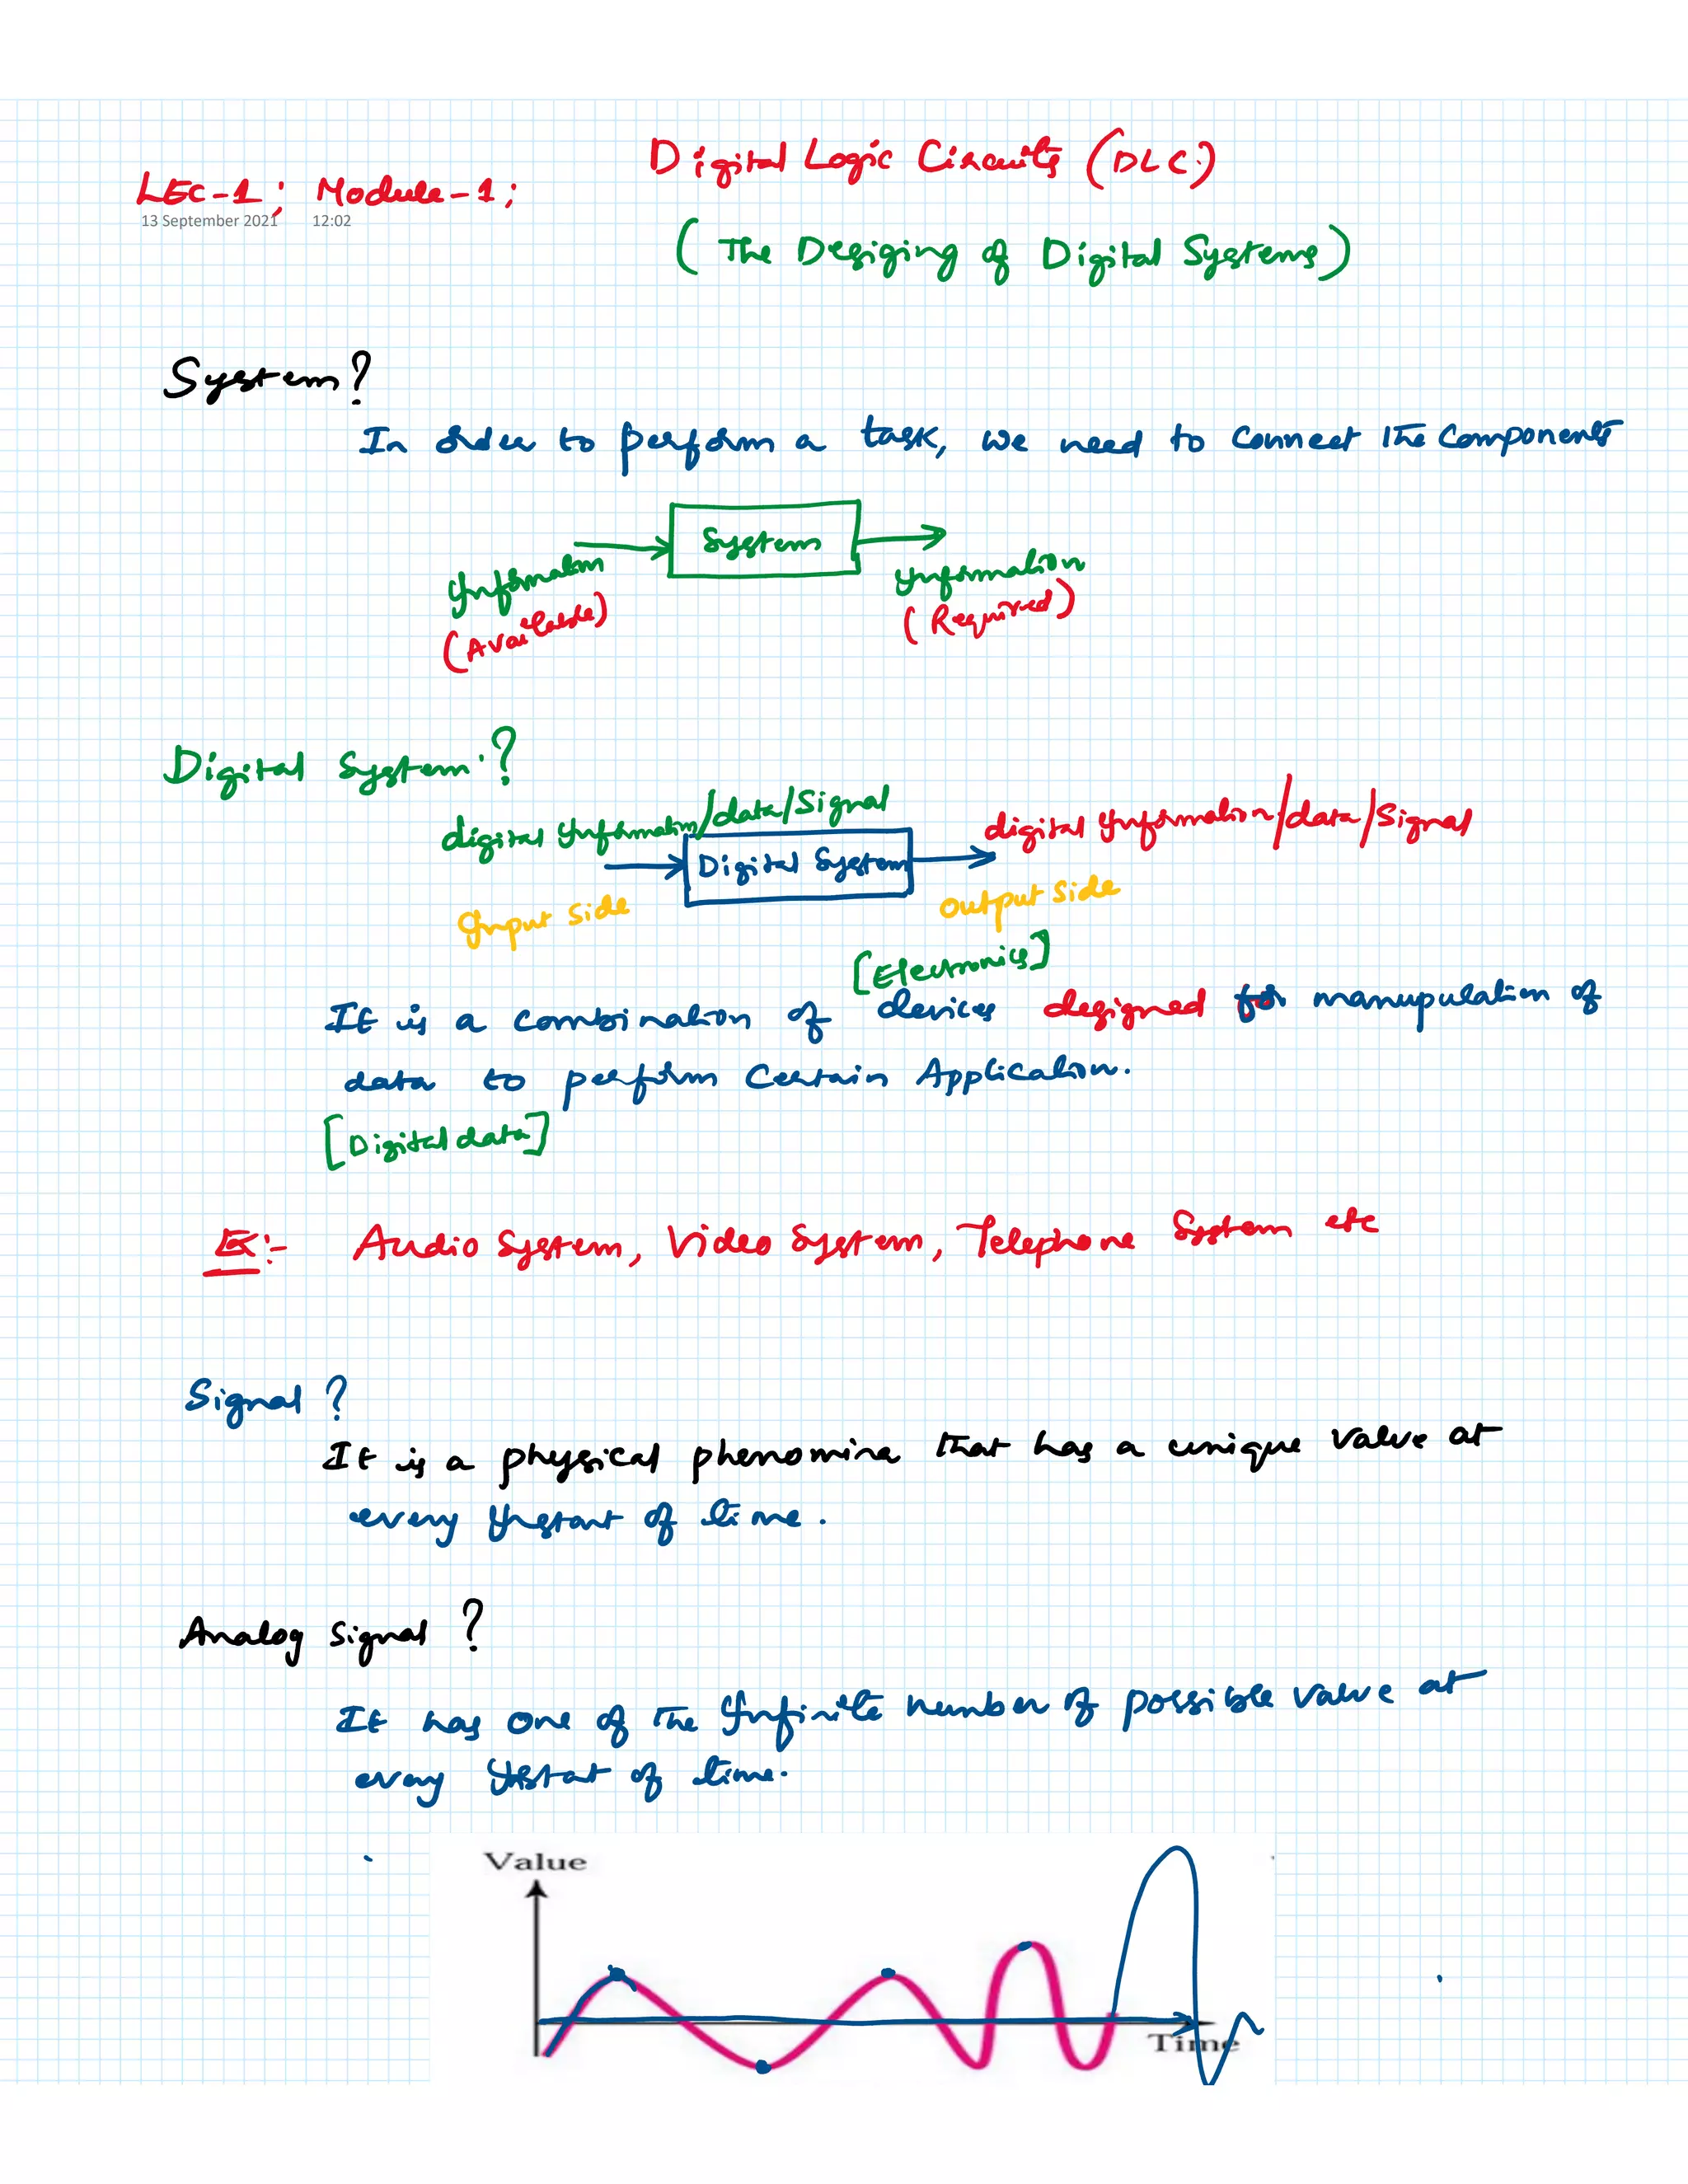 Digital Logic Circuits (DLC)
LEC-1; Module-1;
13 September 2021 12:02
(The Desiging of Digital Systems)
System?
In order to perform a task, we need to connect the components
System
Information
(Available)
Information
(Required)
Digital System?
digital Information/data/Signal
digital Information/data/Signal
Digital System
Input side
output side
[Electronics]
It is a combination of devices designed for manupulation of
data to perform Certain Application.
[Digital data]
Ex:- Audio System, Video System, Telephone System etc
Signal?
It is a physical phenomina that has a unique value at
every Instant of time.
Analog signal?
It has one of the Infinite number of possible value at
every Instat of time.
Value
Time